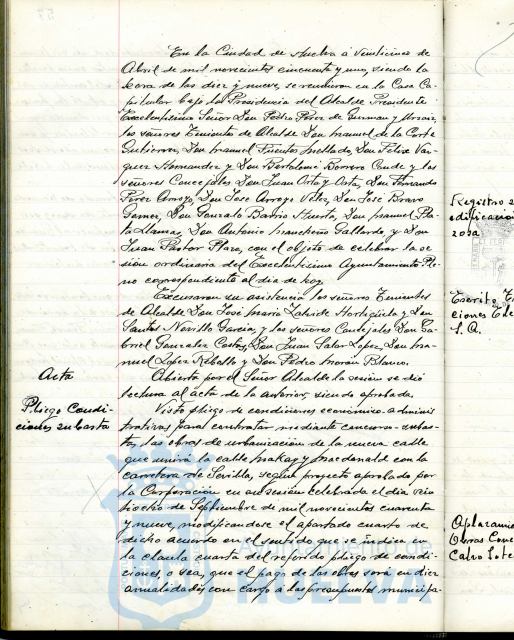 En la Ciudad de Huelva a veinticinco de
Abril de mil novecientos cincuenta y uno, siendo la
hora de las diez y nueve, se reunieron en la Casa Ca-
pitular bajo la Presidencia del Alcalde Presidente
Excelentisimo Señor Don Pedro Pérez de Guzman y
los señores Teniente de Alcalde Don Manuel de la Corte
Gutierrez, Don Manuel Fuentes Mellado, Don Felix Vaz-
quez Hernandez y Don Bartolomé Borrero Conde y los
señores Concejales Don Juan Orta y Orta, Don Fernando
Pérez Arroyo, Don Jose Arroyo Velez, Don Jose Bravo
Gomez, Don Gonzalo Barrio Huerta, Don Manuel Pla-
ta Llamas, Don Antonio Mancheño Gallardo, y Don
Juan Pastor Plaza, con el objeto de celebrar la se-
sion ordinaria del Excelentisimo Ayuntamiento Ple-
no correspondiente al dia de hoy
Excusaron su asistencia los señores Tenientes
de Alcalde Don José Maria Hortigüela y Don
Santos Novillo Garcia, y los señores Concejales Don Ga-
briel Gonzalez Don Juan Salor Lopez, Don Ma-
nuel Lopez Rebollo y Don Pedro Morón Blanco.
Abierta por el Señor Alcalde la sesion se dió
lectura al acta de la anterior, siendo aprobada.
Visto pliego de condiciones economico-adminis
trativas para contratar mediante concurso-subas-
ta, las obras de urbanizacion de la nueva calle
que unirá la calle Makay y Macdonald con la
carretera de Sevilla, según proyecto aprobado por
la Corporación en su sesión celebrada el dia vein
tiocho de Septiembre de mil novecientos cuarenta
y nueve, modificandose el apartado cuarto de
dicho acuerdo en el sentido que se indica en
la clausula cuarta del repetido pliego de condi-
ciones, o sea, que el pago de las obras será en diez
anualidades con cargo a los presupuestos municipa-
Acta
Pliego Condi-
ciones subasta
Registro
edificacion
Escrito
ciones
S. A.
Aplazamie
Obras
Calvo Sote
HUELVA